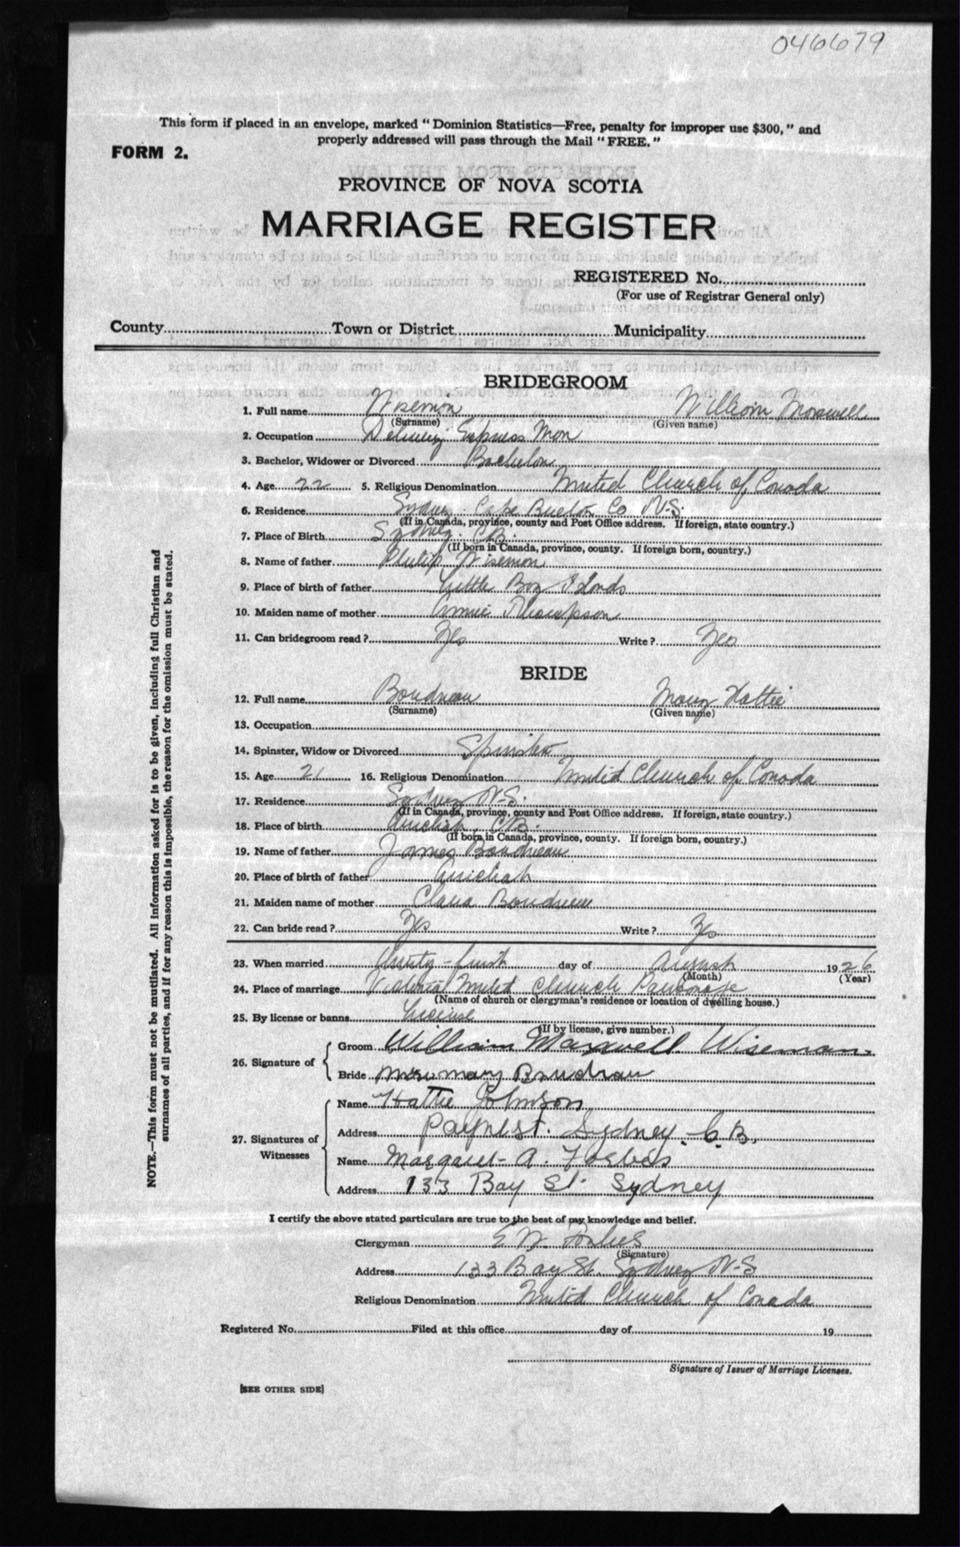 046679
This form if placed in an envelope, marked "Dominion Statistics—Free, penalty for improper use $300," and
properly addressed will pass through the Mail "FREE."
FORM 2.
PROVINCE OF NOVA SCOTIA
MARRIAGE REGISTER
REGISTERED No.
(For use of Registrar General only)
County Town or District Municipality
BRIDEGROOM
1. Full name Wiseman William Maxwell
(Surname) (Given name)
2. Occupation Delivery Express Man
3. Bachelor, Widower or Divorced Bachelor
4. Age 22 5. Religious Denomination United Church of Canada
6. Residence Sydney Cape Breton Co N.S.
(If in Canada, province, county and Post Office address. If foreign, state country.)
7. Place of Birth Sydney C.B.
(If born in Canada, province, county. If foreign born, country.)
8. Name of father Philip Wiseman
9. Place of birth of father Little Bay Islands
10. Maiden name of mother Annie Thompson
11. Can bridegroom read? Yes Write? Yes
BRIDE
12. Full name Boudreau Mary Hattie
(Surname) (Given name)
13. Occupation
14. Spinster, Widow or Divorced Spinster
15. Age 21 16. Religious Denomination United Church of Canada
17. Residence Sydney N.S.
(If in Canada, province, county and Post Office address. If foreign, state country.)
18. Place of birth Arichat C.B.
(If born in Canada, province, county. If foreign born, country.)
19. Name of father James Boudreau
20. Place of birth of father Arichat
21. Maiden name of mother Clara Boudreau
22. Can bride read? Yes Write? Yes
23. When married Twenty-first day of August 1926
(Month) (Year)
24. Place of marriage Victoria United Church Parsonage
(Name of church or clergyman's residence or location of dwelling house.)
25. By license or banns License
(If by license, give number.)
26. Signature of
Groom William Maxwell Wiseman
Bride Mary Boudreau
27. Signatures of Witnesses
Name Hattie Johnson
Address St. Sydney. C.B.
Name Margaret A. Forbes
Address 133 Bay St. Sydney
I certify the above stated particulars are true to the best of my knowledge and belief.
Clergyman E W Forbes
(Signature)
Address 133 Bay St. Sydney N-S
Religious Denomination United Church of Canada
Registered No. Filed at this office day of 19
Signature of Issuer of Marriage Licenses.
[SEE OTHER SIDE]
NOTE.—This form must not be mutilated. All information asked for is to be given, including full Christian and
surnames of all parties, and if for any reason this is impossible, the reason for the omission must be stated.